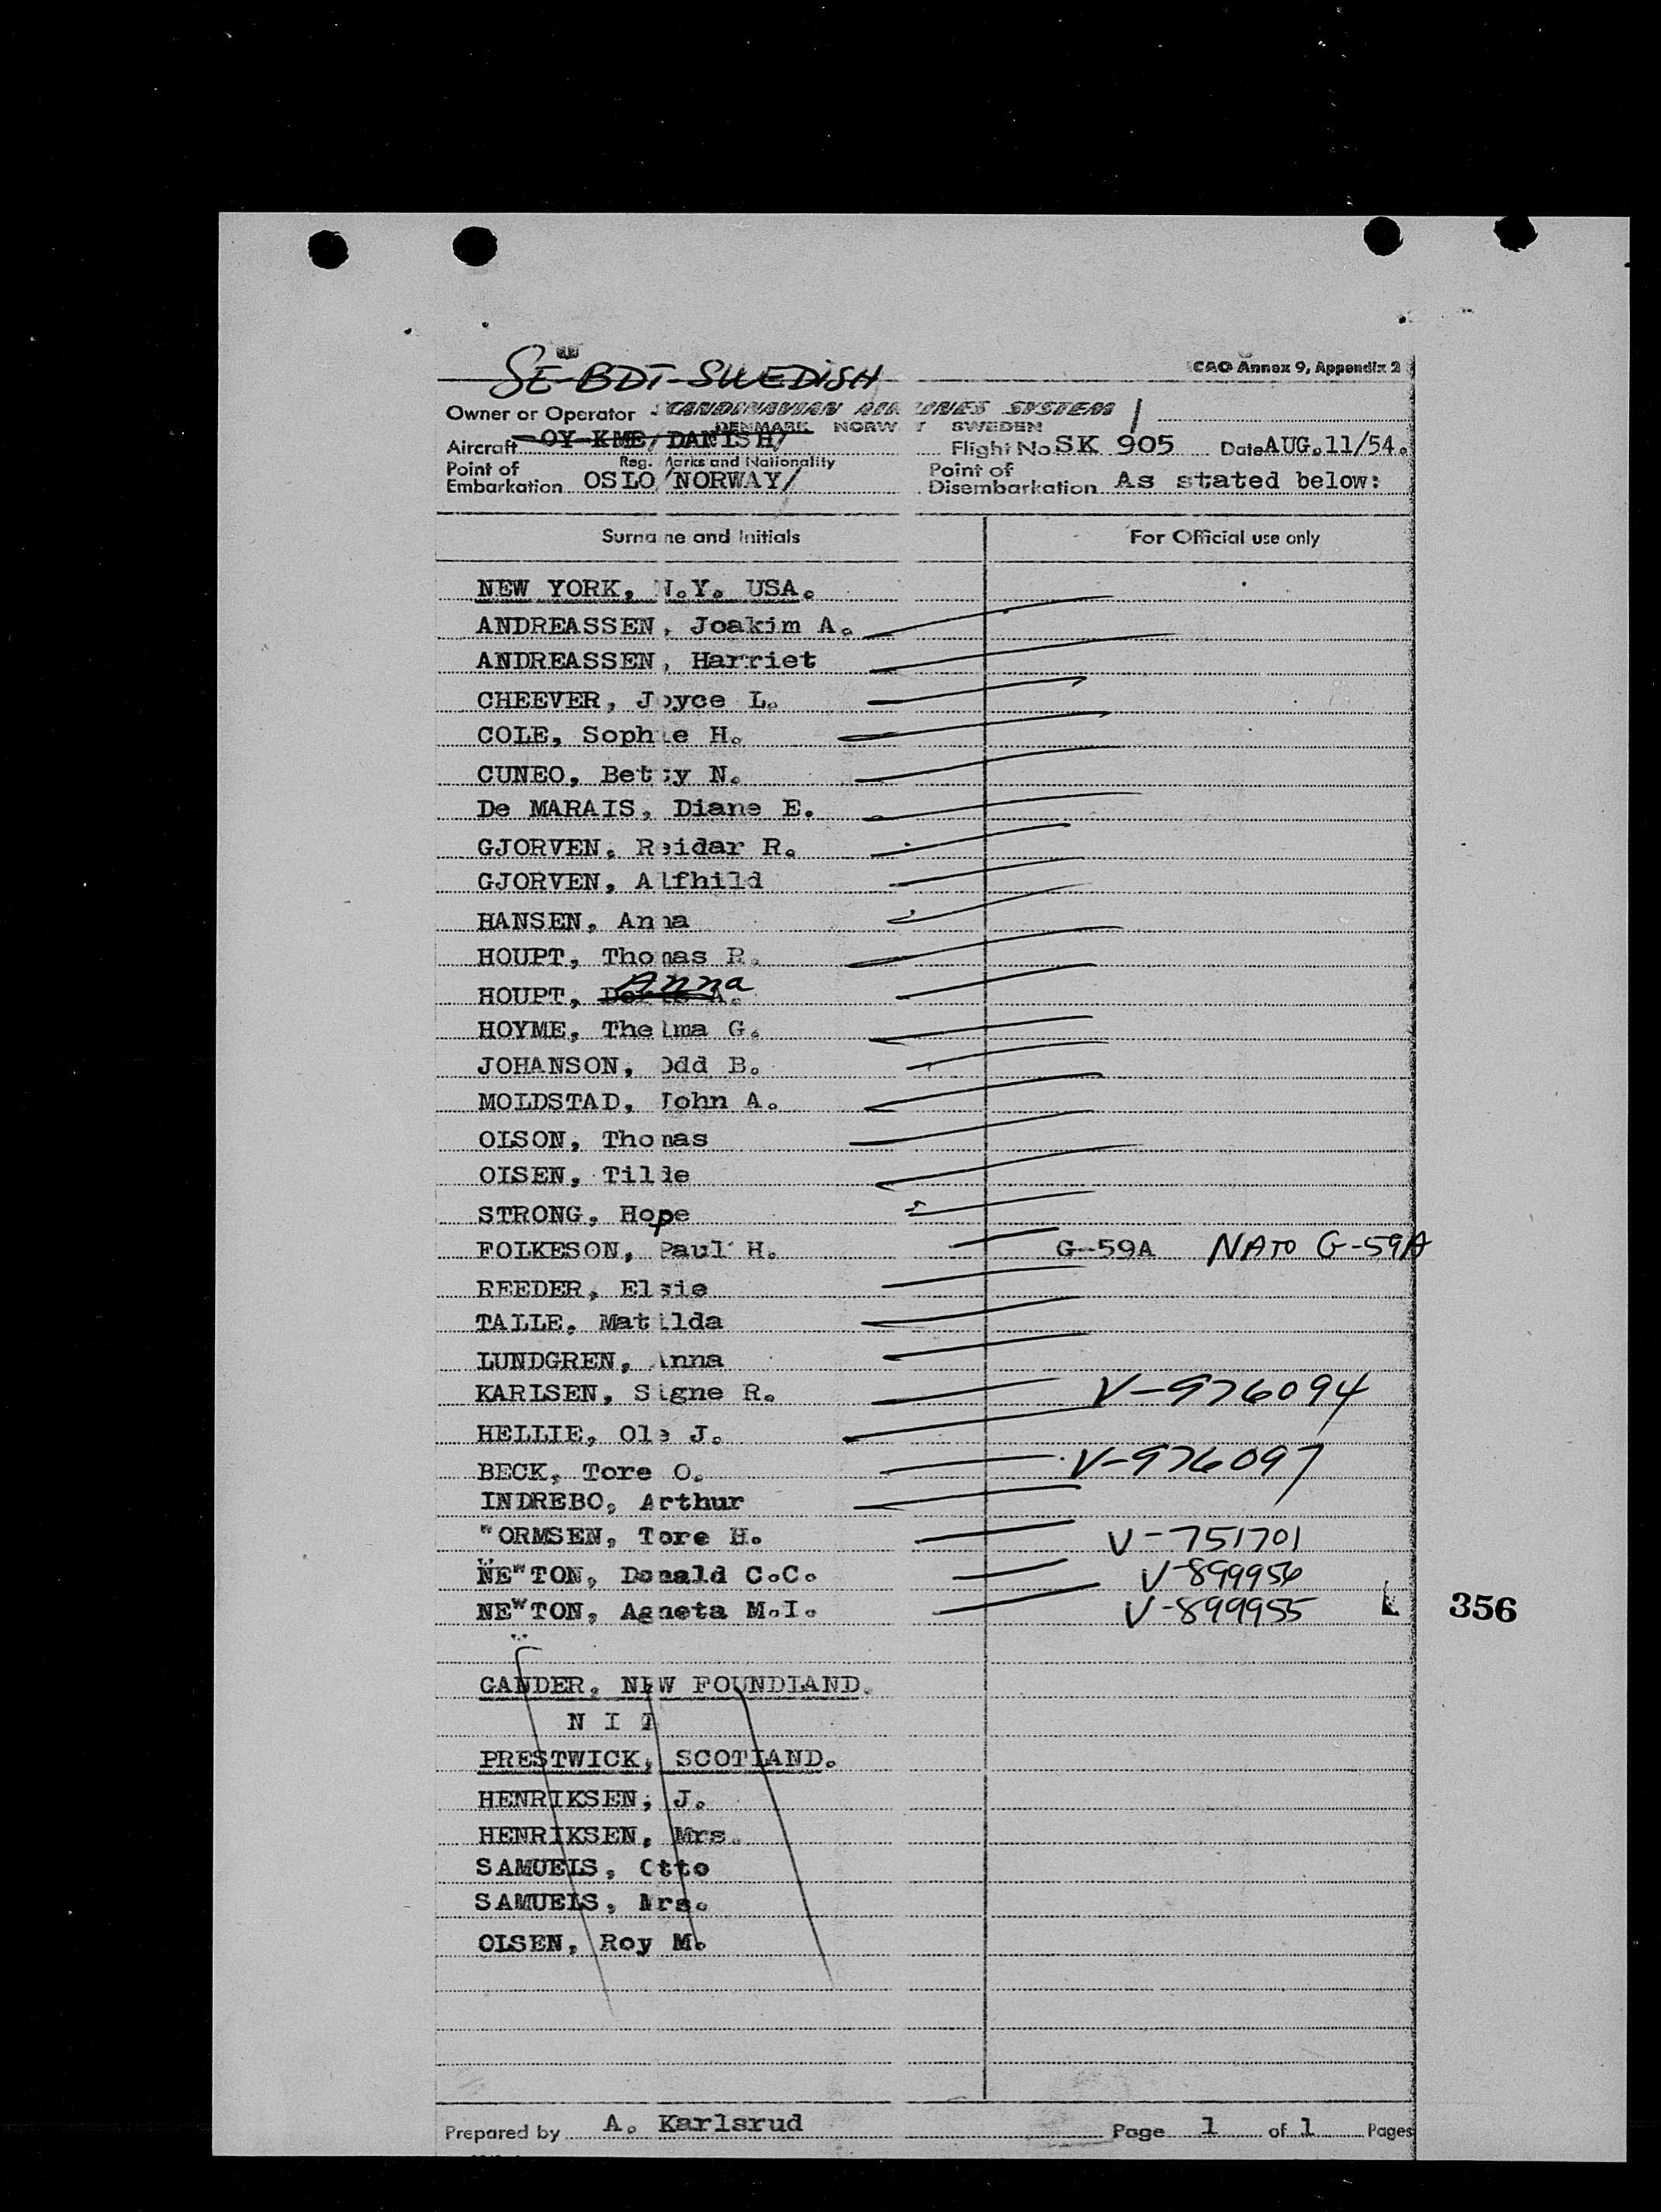 SE-BDT-SWEDISH
ICAO Annex 9, Appendix 2
Owner or Operator SCANDINAVIAN AIRLINES SYSTEM
DENMARK NORWAY SWEDEN
Aircraft OY-KME/DANISH/ Flight No SK 905 Date AUG. 11/54.
Reg. Marks and Nationality
Point of Embarkation OSLO/NORWAY/ Point of Disembarkation As stated below:
Surname and Initials For Official use only
NEW YORK, N.Y. USA.
ANDREASSEN, Joakim A.
ANDREASSEN, Harriet
CHEEVER, Joyce L.
COLE, Sophie H.
CUNEO, Betsy N.
De MARAIS, Diane E.
GJORVEN, Reidar R.
GJORVEN, Alfhild
HANSEN, Anna
HOUPT, Thomas R.
HOUPT, Anna
HOYME, Thelma G.
JOHANSON, Odd B.
MOLDSTAD, John A.
OLSON, Thomas
OLSEN, Tilde
STRONG, Hope
FOLKESON, Paul H. G-59A NATO G-59A
REEDER, Elsie
TALLE, Matilda
LUNDGREN, Anna
KARLSEN, Signe R. V-976094
HELLIE, Ole J.
BECK, Tore O. V-976097
INDREBO, Arthur
WORMSEN, Tore H. V-751701
NEWTON, Donald C.C. V-899956
NEWTON, Agneta M.I. V-899955
356
GANDER, NEW FOUNDLAND.
N I L
PRESTWICK, SCOTLAND.
HENRIKSEN, J.
HENRIKSEN, Mrs.
SAMUELS, Otto
SAMUELS, Mrs.
OLSEN, Roy M.
Prepared by A. Karlsrud Page 1 of 1 Pages